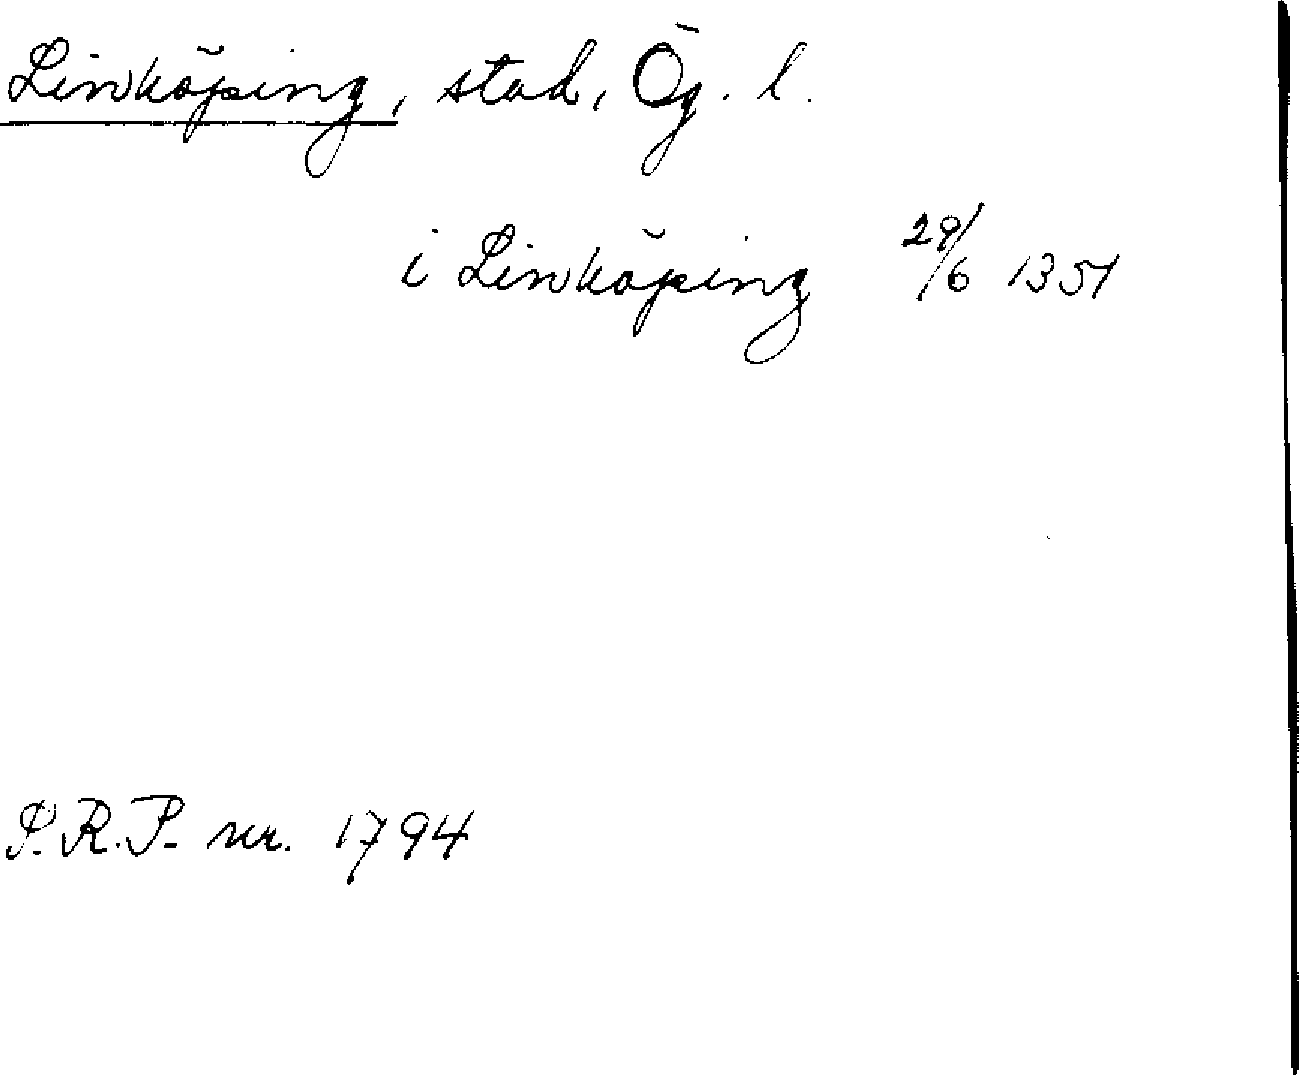 Linköping, stad, Ög. l.
i Linköping 29/6 1351
S.R.P. nr. 1794